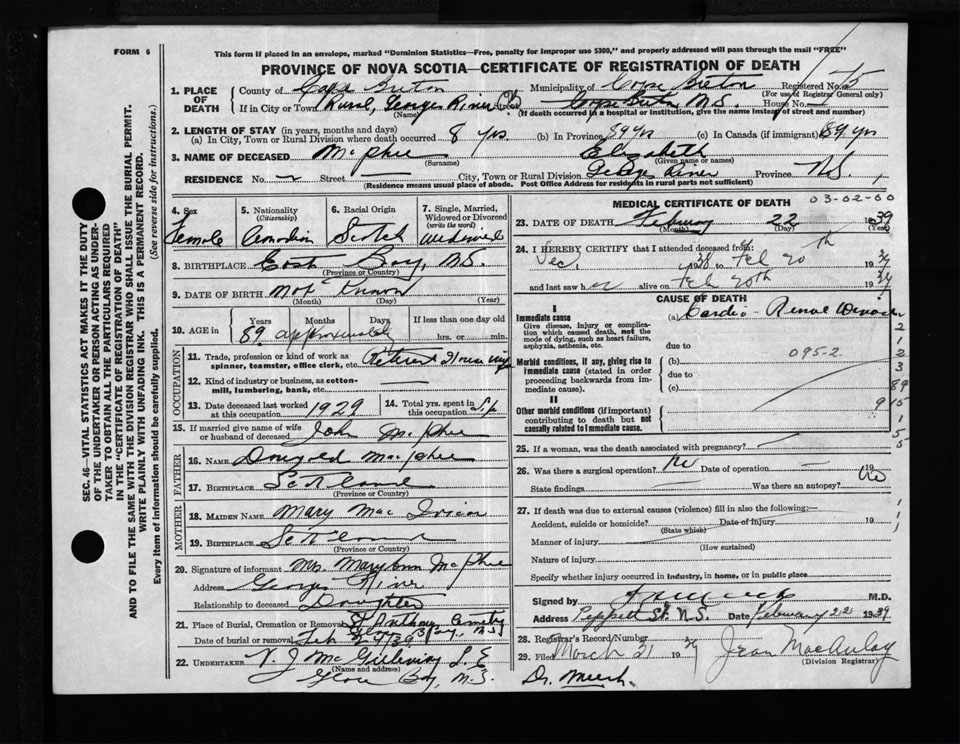 FORM 6
This form if placed in an envelope, marked "Dominion Statistics—Free, penalty for improper use $300," and properly addressed will pass through the mail "FREE"
PROVINCE OF NOVA SCOTIA—CERTIFICATE OF REGISTRATION OF DEATH
1. PLACE OF DEATH County of Cape Breton Municipality of Cape Breton Registered No. 15
(For use of Registrar General only)
If in City or Town Rural, Georges River Cape Breton N.S. House No.
(Name) (If death occurred in a hospital or institution, give the name instead of street and number)
2. LENGTH OF STAY (in years, months and days)
(a) In City, Town or Rural Division where death occurred 8 yrs (b) In Province 89 yrs (c) In Canada (if immigrant) 89 yrs
3. NAME OF DECEASED McPhee Elizabeth
(Surname) (Given name or names)
RESIDENCE No. Street City, Town or Rural Division Georges River Province N.S.
(Residence means usual place of abode. Post Office Address for residents in rural parts not sufficient)
4. Sex Female
5. Nationality (Citizenship) Canadian
6. Racial Origin Scotch
7. Single, Married, Widowed or Divorced (write the word) Widowed
8. BIRTHPLACE Bay, N.S.
(Province or Country)
9. DATE OF BIRTH Not Known
(Month) (Day) (Year)
10. AGE in Years Months Days If less than one day old
89 approximately hrs. or min.
OCCUPATION
11. Trade, profession or kind of work as spinner, teamster, office clerk, etc. Retired
12. Kind of industry or business, as cotton-mill, lumbering, bank, etc.
13. Date deceased last worked at this occupation 1929
14. Total yrs. spent in this occupation
15. If married give name of wife or husband of deceased John McPhee
FATHER
16. NAME Dougald MacPhee
17. BIRTHPLACE Scotland
(Province or Country)
MOTHER
18. MAIDEN NAME Mary Mac
19. BIRTHPLACE Scotland
(Province or Country)
20. Signature of informant Mrs. Mary Ann McPhee
Address Georges River
Relationship to deceased Daughter
21. Place of Burial, Cremation or Removal St Anthony Cemetery
Date of burial or removal Feb
22. UNDERTAKER V J McGillivray
(Name and address)
Glace Bay, N.S.
MEDICAL CERTIFICATE OF DEATH
03-02-00
23. DATE OF DEATH February 22 1939
(Month) (Day) (Year)
24. I HEREBY CERTIFY that I attended deceased from:
Dec, 1938 to Feb 20th 1939
and last saw her alive on Feb 20th 1939
CAUSE OF DEATH
I
Immediate cause
Give disease, injury or complication which caused death, not the mode of dying, such as heart failure, asphyxia, asthenia, etc.
(a) Cardio-Renal Disease
due to
Morbid conditions, if any, giving rise to immediate cause (stated in order proceeding backwards from immediate cause).
(b) 095-2
due to
(c)
II
Other morbid conditions (if important) contributing to death but not causally related to immediate cause.
25. If a woman, was the death associated with pregnancy?
26. Was there a surgical operation? No Date of operation 19
State findings Was there an autopsy? No
27. If death was due to external causes (violence) fill in also the following:—
Accident, suicide or homicide? Date of injury 19
(State which)
Manner of injury
(How sustained)
Nature of injury
Specify whether injury occurred in industry, in home, or in public place
Signed by M.D.
Address Peppett St. N.S. Date February 22 1939
28. Registrar's Record Number
29. Filed March 21 1939 Jean MacAulay
(Division Registrar)
Dr.
SEC. 46—VITAL STATISTICS ACT MAKES IT THE DUTY OF THE UNDERTAKER OR PERSON ACTING AS UNDERTAKER TO OBTAIN ALL THE PARTICULARS REQUIRED IN THE "CERTIFICATE OF REGISTRATION OF DEATH" AND TO FILE THE SAME WITH THE DIVISION REGISTRAR WHO SHALL ISSUE THE BURIAL PERMIT.
WRITE PLAINLY WITH UNFADING INK. THIS IS A PERMANENT RECORD.
Every item of information should be carefully supplied. (See reverse side for instructions.)